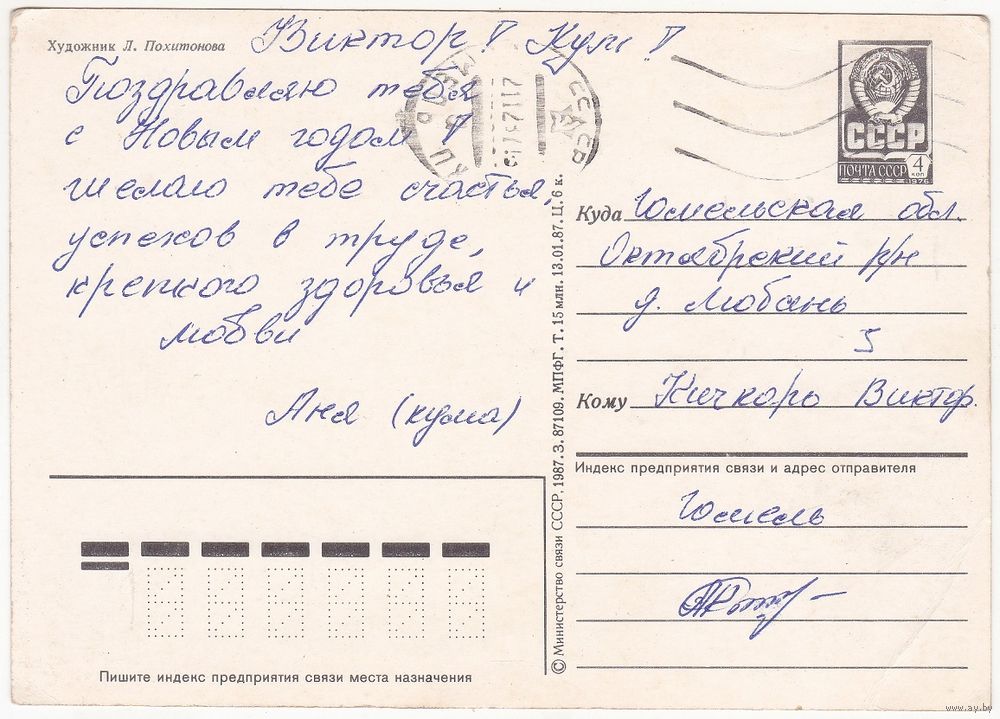 Художник Л. Похитонова
Виктор! Кум!
Поздравляю тебя
с Новым годом!
желаю тебе счастья,
успехов в труде,
крепкого здоровья и
любви
Аня (кума)
СССР
ПОЧТА СССР
4
коп
1976
Куда Гомельская обл.
Октябрьский р/н
д. Любань
Кому Кичкаро Виктор.
Индекс предприятия связи и адрес отправителя
Гомель
© Министерство связи СССР, 1987. З. 87109. МПФГ. Т. 15 млн. 13.01.87. Ц. 6 к.
Пишите индекс предприятия связи места назначения
www.ay.by